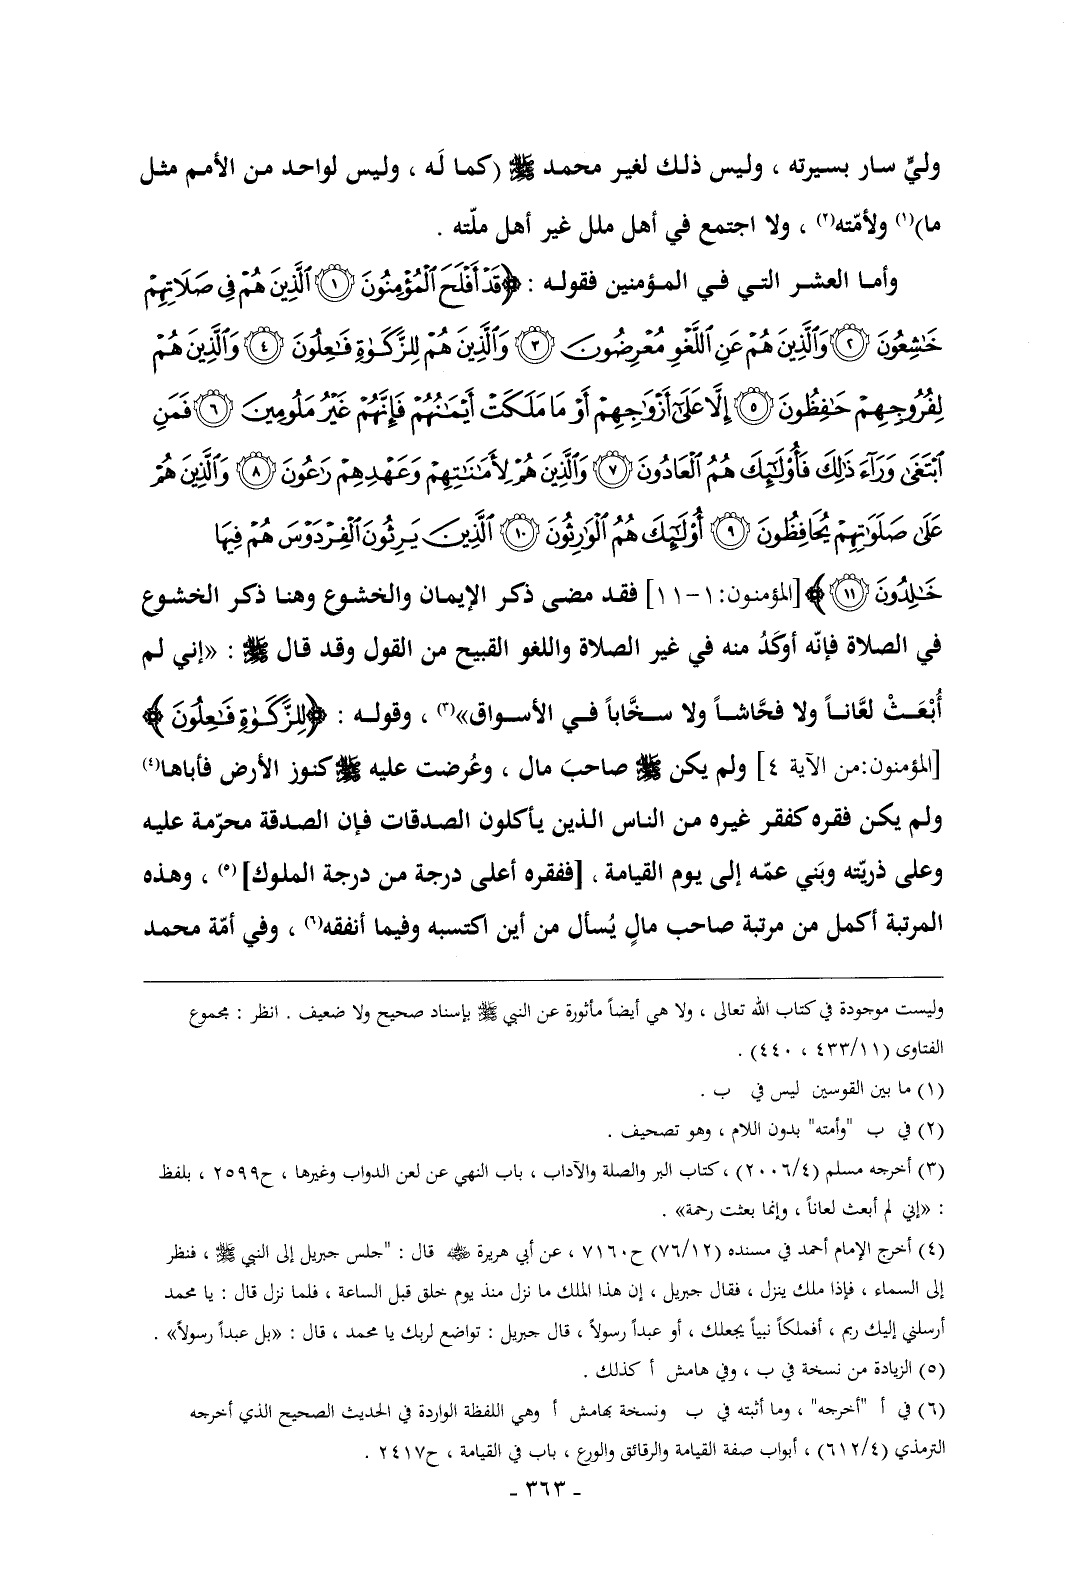 وليٍّ سار بسيرته ، وليس ذلك لغير محمد ﷺ (كما لَه ، وليس لواحد من الأمم مثل
ما)(١) ولأمّته(٢) ، ولا اجتمع في أهل ملل غير أهل ملّته .
وأما العشر التي في المؤمنين فقوله : ﴿قَدْ أَفْلَحَ ٱلْمُؤْمِنُونَ ۝١ ٱلَّذِينَ هُمْ فِى صَلَاتِهِمْ
خَٰشِعُونَ ۝٢ وَٱلَّذِينَ هُمْ عَنِ ٱللَّغْوِ مُعْرِضُونَ ۝٣ وَٱلَّذِينَ هُمْ لِلزَّكَوٰةِ فَٰعِلُونَ ۝٤ وَٱلَّذِينَ هُمْ
لِفُرُوجِهِمْ حَٰفِظُونَ ۝٥ إِلَّا عَلَىٰٓ أَزْوَٰجِهِمْ أَوْ مَا مَلَكَتْ أَيْمَٰنُهُمْ فَإِنَّهُمْ غَيْرُ مَلُومِينَ ۝٦ فَمَنِ
ٱبْتَغَىٰ وَرَآءَ ذَٰلِكَ فَأُو۟لَٰٓئِكَ هُمُ ٱلْعَادُونَ ۝٧ وَٱلَّذِينَ هُمْ لِأَمَٰنَٰتِهِمْ وَعَهْدِهِمْ رَٰعُونَ ۝٨ وَٱلَّذِينَ هُمْ
عَلَىٰ صَلَوَٰتِهِمْ يُحَافِظُونَ ۝٩ أُو۟لَٰٓئِكَ هُمُ ٱلْوَٰرِثُونَ ۝١٠ ٱلَّذِينَ يَرِثُونَ ٱلْفِرْدَوْسَ هُمْ فِيهَا
خَٰلِدُونَ ۝١١﴾ [المؤمنون:١-١١] فقد مضى ذكر الإيمان والخشوع وهنا ذكر الخشوع
في الصلاة فإنّه أوكَدُ منه في غير الصلاة واللغو القبيح من القول وقد قال ﷺ : «إني لم
أُبْعَثْ لعَّاناً ولا فحَّاشاً ولا سخَّاباً في الأسواق»(٣) ، وقوله : ﴿لِلزَّكَوٰةِ فَٰعِلُونَ﴾
[المؤمنون:من الآية ٤] ولم يكن ﷺ صاحبَ مال ، وعُرضت عليه ﷺ كنوز الأرض فأباها(٤)
ولم يكن فقره كفقر غيره من الناس الذين يأكلون الصدقات فإن الصدقة محرّمة عليه
وعلى ذريّته وبَني عمّه إلى يوم القيامة ، [ففقره أعلى درجة من درجة الملوك](٥) ، وهذه
المرتبة أكمل من مرتبة صاحب مالٍ يُسأل من أين اكتسبه وفيما أنفقه(٦) ، وفي أمّة محمد
وليست موجودة في كتاب الله تعالى ، ولا هي أيضاً مأثورة عن النبي ﷺ بإسناد صحيح ولا ضعيف . انظر : مجموع
الفتاوى (٤٣٣/١١ ، ٤٤٠) .
(١) ما بين القوسين ليس في ب .
(٢) في ب "وأمته" بدون اللام ، وهو تصحيف .
(٣) أخرجه مسلم (٢٠٠٦/٤) ، كتاب البر والصلة والآداب ، باب النهي عن لعن الدواب وغيرها ، ح٢٥٩٩ ، بلفظ
: «إني لم أبعث لعاناً ، وإنما بعثت رحمة» .
(٤) أخرج الإمام أحمد في مسنده (٧٦/١٢) ح٧١٦٠ ، عن أبي هريرة ﷺ قال : "جلس جبريل إلى النبي ﷺ ، فنظر
إلى السماء ، فإذا ملك ينزل ، فقال جبريل ، إن هذا الملك ما نزل منذ يوم خلق قبل الساعة ، فلما نزل قال : يا محمد
أرسلني إليك ربم ، أفملكاً نبياً يجعلك ، أو عبداً رسولاً ، قال جبريل : تواضع لربك يا محمد ، قال : «بل عبداً رسولاً» .
(٥) الزيادة من نسخة في ب ، وفي هامش أ كذلك .
(٦) في أ "أخرجه" ، وما أثبته في ب ونسخة بهامش أ وهي اللفظة الواردة في الحديث الصحيح الذي أخرجه
الترمذي (٦١٢/٤) ، أبواب صفة القيامة والرقائق والورع ، باب في القيامة ، ح٢٤١٧ .
- ٣٦٣ -